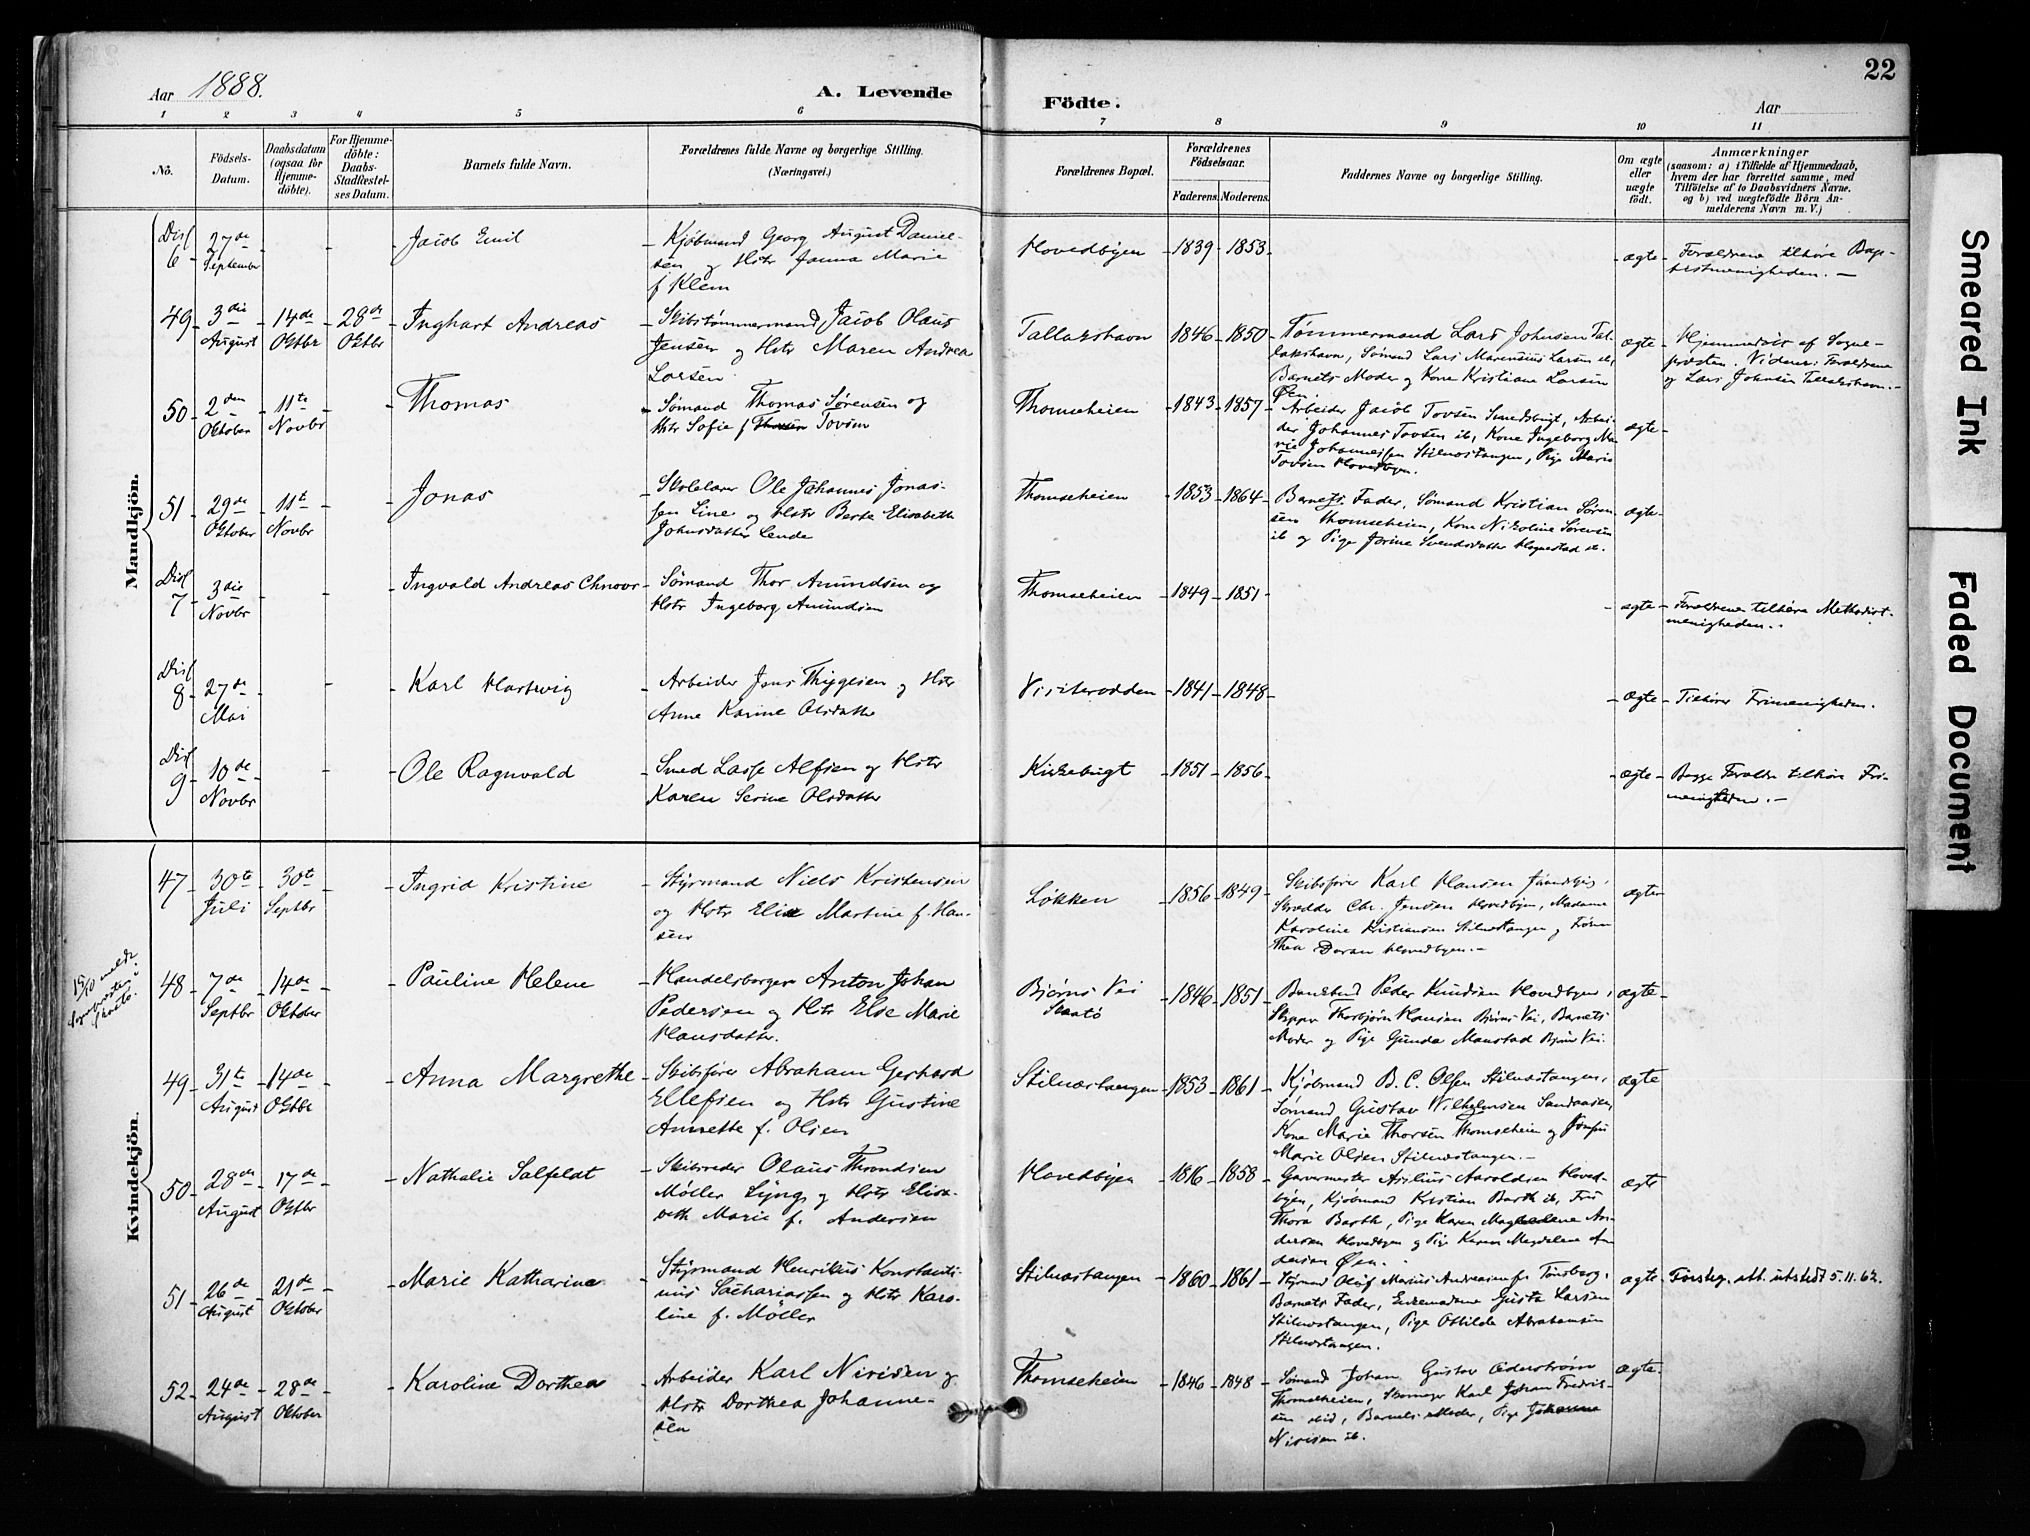 Aar 1888.
A. Levende
Födte.
Aar
22
1 2 3 4 5 6 7 8 9 10 11
No.
Födsels-
Datum.
Daabsdatum
(ogsaa for
Hjemme-
döbte).
For Hjemme-
döbte:
Daabs-
Stadfæstel-
ses Datum.
Barnets fulde Navn.
Forældrenes fulde Navne og borgerlige Stilling.
(Næringsvei.)
Forældrenes Bopæl.
Forældrenes
Födselsaar.
Faderens. Moderens.
Faddernes Navne og borgerlige Stilling.
Om ægte
eller
uægte
født.
Anmærkninger
(saasom: a) i Tilfælde af Hjemmedaab,
hvem der har forrettet samme, med
Tilföielse af to Daabsvidners Navne,
og b) ved uægtefödte Börn An-
melderens Navn m. V.)
Mandkjön.
Diss
6
27de
September
Jacob Emil
Kjøbmand Georg August Daniel-
sen og Hstr Janna Marie
f Klem
Hovedbyen
1839 1853
ægte
Forældrene tilhøre Bap-
tistmenigheden.
49
3die
August
14de
Oktbr
28de
Oktbr
Inghart Andreas
Skibstømmermand Jacob Olaus
Jensen og Hstr Maren Andrea
Larsen
Tallakshavn
1846 1850
Tømmermand Lars Johnsen Tal-
lakshavn, Sømand Lars Marensius Larsen ib,
Barnets Moder og Kone Kristiane Larsen
Øen.
ægte
Hjemmedøbt af Sogne-
præsten. Vidner: Forældrene
og Lars Johnsen Tallakshavn.
50
2den
Oktober
11te
Novbr
Thomas
Sømand Thomas Sørensen og
Hstr Sofie f Tovsen
Thomseheien
1843 1857
Arbeider Jacob Tovsen Smedsbugt, Arbei-
der Johannes Tovsen ib, Kone Ingeborg Ma-
rie Johannessen Stilnæstangen, Pige Marie
Tovsen Hovedbyen.
ægte
51
29de
Oktober
11te
Novbr
Jonas
Skolelærer Ole Johannes Jonas-
sen Line og Hstr Berte Elisabeth
Johnsdatter Lende
Thomseheien
1853 1864
Barnets Fader, Sømand Kristian Søren-
sen Thomseheien, Kone Nikoline Sørensen
ib og Pige Jorine Svendsdatter Hognestad ib.
ægte
Diss
7
3die
Novbr
Ingvald Andreas
Sømand Thor Amundsen og
Hstr Ingeborg Amundsen
Thomseheien
1849 1851
ægte
Forældrene tilhøre Methodist-
menigheden.
Diss
8
27de
Mai
Karl Hartvig
Arbeider Jens Thygesen og Hstr
Anne Karine Olsdatter
1841 1848
ægte
Tilhører Frimenigheden.
Diss
9
10de
Novbr
Ole Ragnvald
Smed Lasse Alfsen og Hstr
Karen Serine Olsdatter
Kirkebugt
1851 1856
ægte
Begge Forældre tilhøre Fri-
menigheden.
Kvindekjön.
47
30te
Juli
30te
Septbr
Ingrid Kristine
Styrmand Niels Kristensen
og Hstr Elise Martine f. Han-
sen
Løkken
1856 1849
Skibsfører Karl Hansen
Skrædder Chr. Jensen Hovedbyen, Madame
Karoline Kristiansen Stilnæstangen og Frøken
Thea Hovedbyen.
ægte
15/10 meldt
Sognepræsten i
Skaatø.
48
7de
Septbr
14de
Oktober
Pauline Helene
Handelsborger Anton Johan
Pedersen og Hstr Else Marie
Hansdatter.
Bjørns Vei
Skaatö
1846 1851
Peder Knudsen Hovedbyen,
Skipper Thorbjørn Hansen Bjørns Vei, Barnets
Moder og Pige Gunda Manstad Bjørns Vei.
ægte
49
31te
August
14de
Oktbr
Anna Margrethe
Skibsfører Abraham Gerhard
Ellefsen og Hstr Gustine
Annette f. Olsen
Stilnæstangen
1853 1861
Kjøbmand B. C. Olsen Stilnæstangen,
Sømand Gustav Wilhelmsen Sandaasen,
Kone Marie Thorsen Thomseheien og Jomfru
Marie Olsen Stilnæstangen.
ægte
50
28de
August
17de
Oktbr
Nathalie Salfeldt
Skibsreder Olaus Throndsen
Møller Lyng og Hstr Elisa-
beth Marie f. Andersen
Hovedbyen
1816 1858
Garvermester Asilius Aaroldsen Hoved-
byen, Kjøbmand Kristian Barth ib, Fru
Thora Barth, Pige Karen Magdelene An-
dersen Hovedbyen og Pige Karen Magdelene An-
dersen Øen.
ægte
51
26de
August
21de
Oktober
Marie Katharine
Styrmand Henrikus Konstanti-
nus Sachariassen og Hstr Karo-
line f. Møller
Stilnæstangen
1860 1861
Styrmand Oluf Marius Andreasen fr. Tønsberg,
Barnets Fader, Enkemadame Gusta Larsen
Stilnæstangen, Pige Othilde Abrahamsen
Stilnæstangen.
ægte
Forsteg. att. utstedt 5.11.62.
52
24de
August
28de
Oktober
Karoline Dorthea
Arbeider Karl Nirisen og
Hstr Dorthea Johanne-
sen
Thomseheien
1846 1848
Sømand Johan Gustav Cederstrøm
Thomseheien, Skomager Karl Johan Fredrik-
sen ibid, Barnets Moder, Pige Johanne
Nirisen ib.
ægte
Smeared Ink
Faded Document